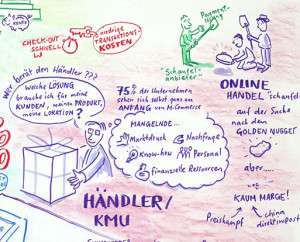 CHECK-OUT
SCHNELL
niedrige
TRANSAKTIONS-
KOSTEN
Payment-
Schaufel-
anbieter
Wer berät den Händler???
Welche LÖSUNG
brauche ich für meine
KUNDEN, meine PRODUKT,
meine LOKATION?
75% der Unternehmen
sehen sich selbst ganz am
ANFANG von M-Commerce
MANGELNDE...
Marktdruck
Nachfrage
Know-how
Personal
Finanzielle Ressourcen
HÄNDLER/
KMU
ONLINE
HANDEL
auf der Suche
nach dem
GOLDEN NUGGET
aber...
KAUM MARGE!
Preiskampf
china
direktimport